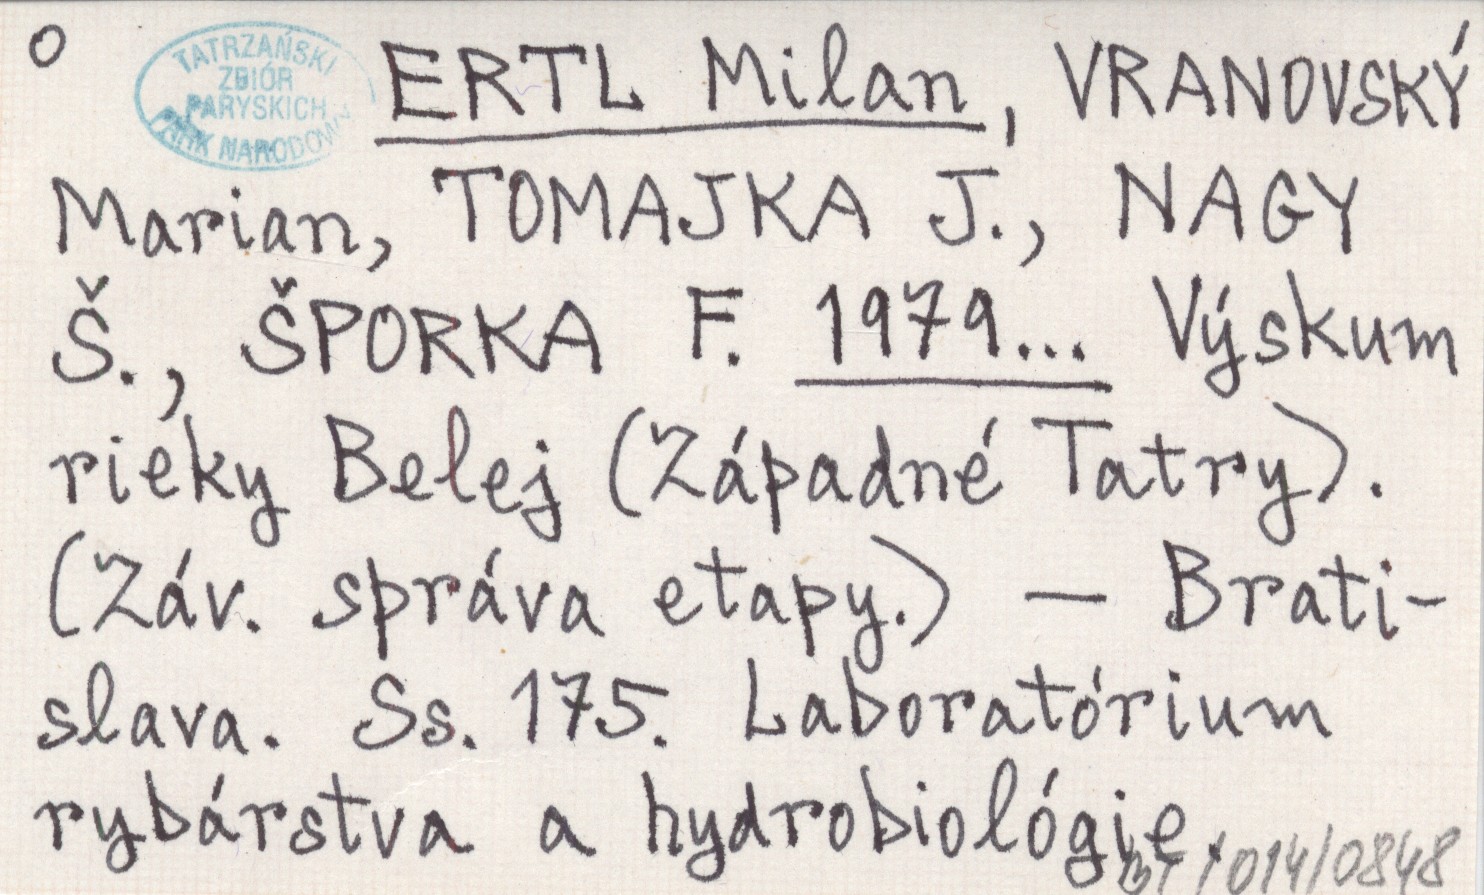 O
TATRZAŃSKI
ZBIÓR
PARYSKICH
PARK NARODOWY
ERTL Milan, VRANOVSKÝ
Marian, TOMAJKA J., NAGY
Š., ŠPORKA F. 1979... Výskum
rieky Belej (Západné Tatry).
(Záv. správa etapy.) — Brati-
slava. Ss. 175. Laboratórium
rybárstva a hydrobiológie.
BT/014/0848